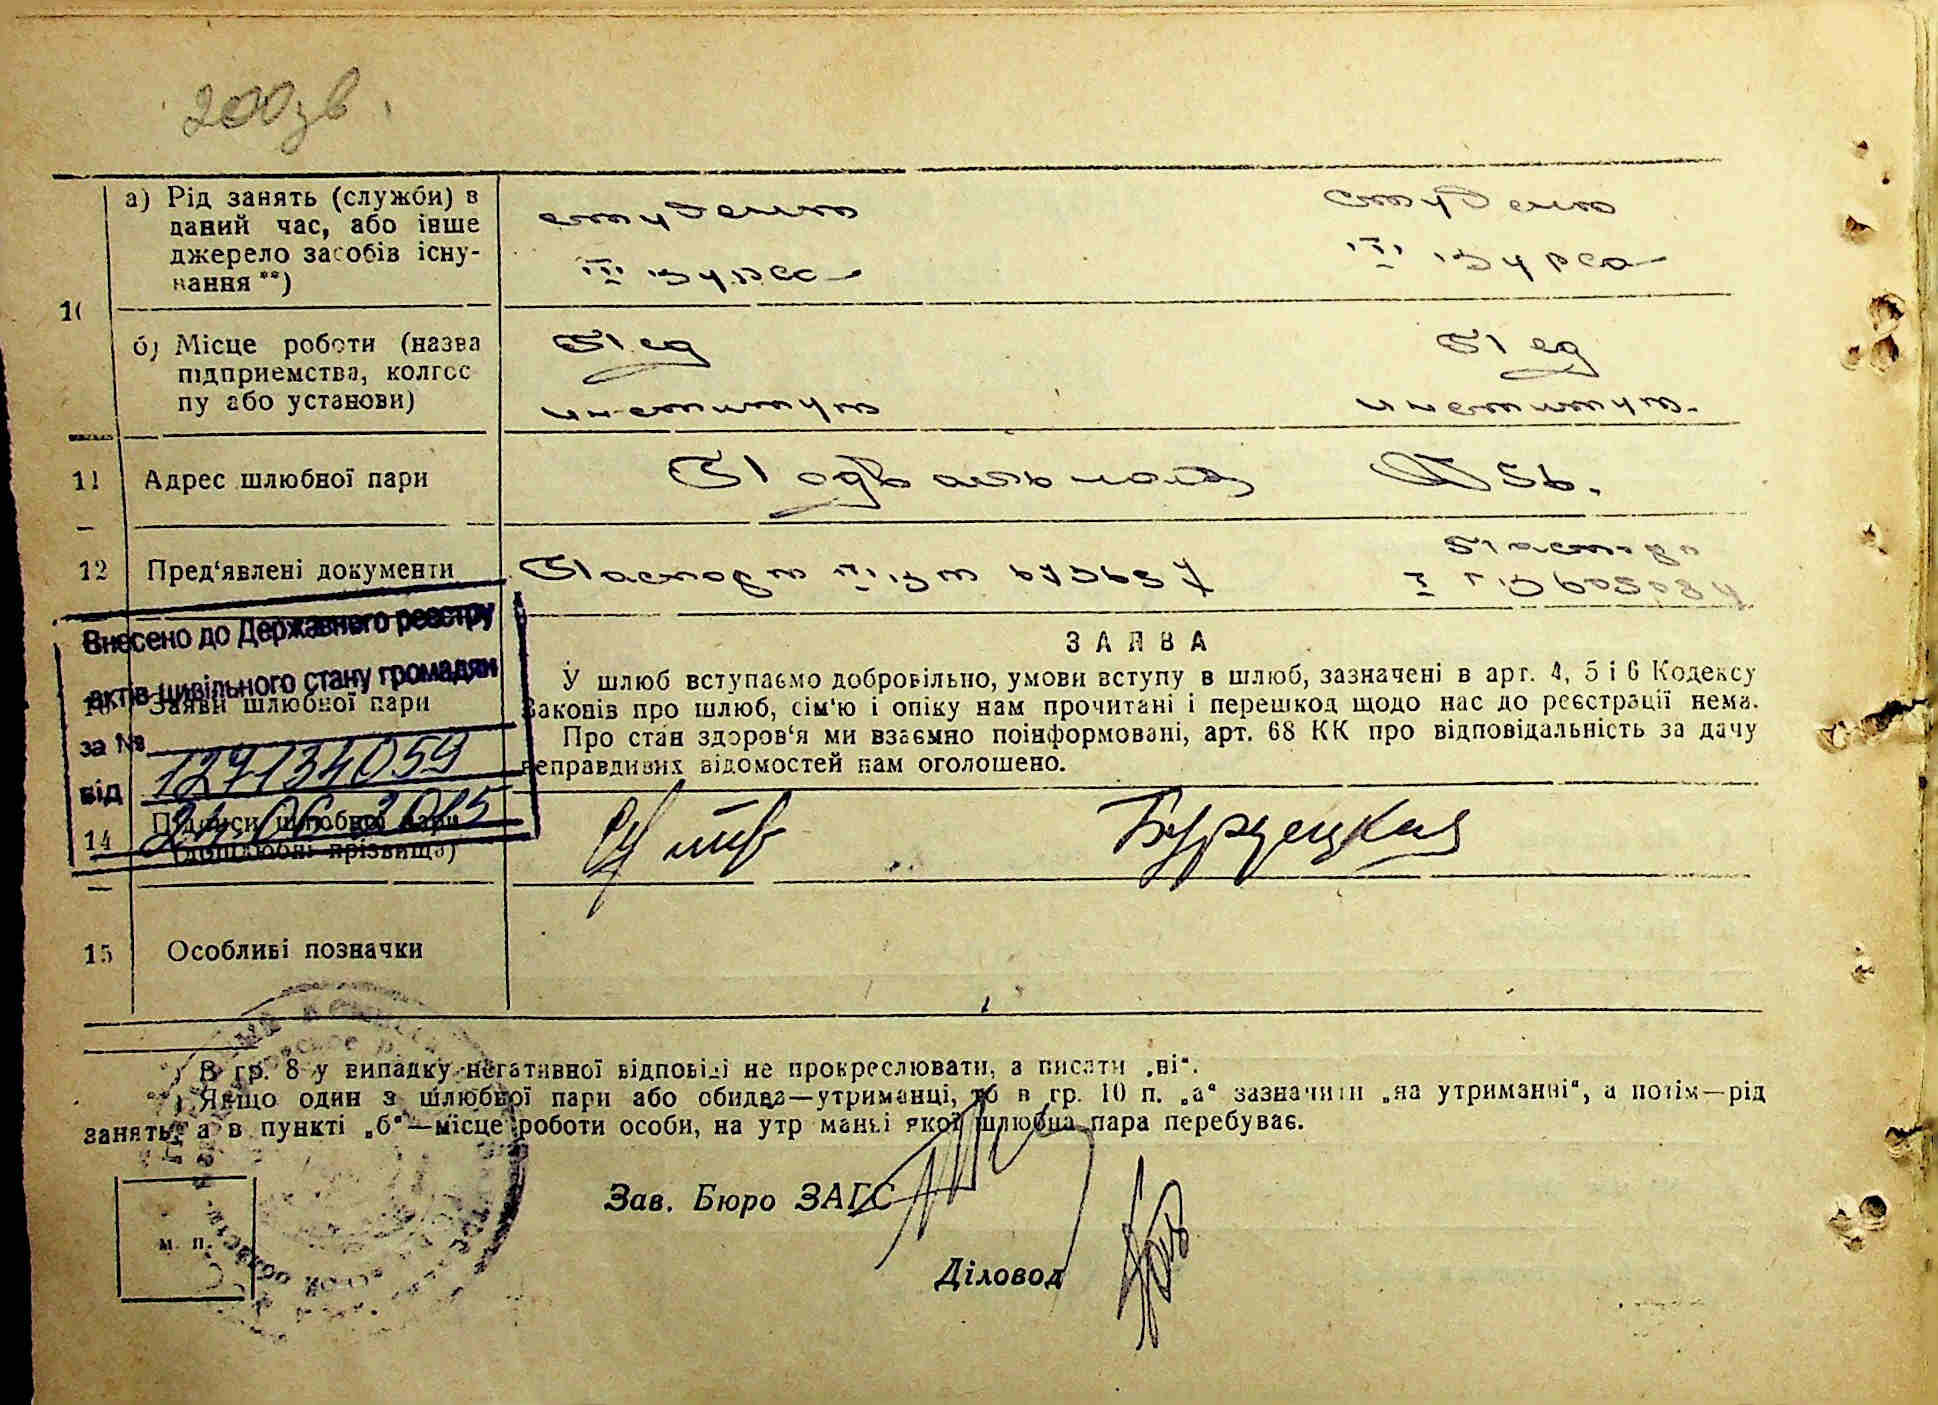 200
а) Рід занять (служби) в
даний час, або інше
джерело засобів існу-
вання **)
студент
III курса
студент
III курса
10
б) Місце роботи (назва
підприємства, колгос
пу або установи)
Пед
институт
Пед
институт.
11
Адрес шлюбної пари
12
Пред‘явлені документи
Паспорт
Внесено до Державного реєстру
актів цивільного стану громадян
за №
127134059
від
24.06.2015
Заяви шлюбної пари
ЗАЯВА
У шлюб вступаємо добровільно, умови вступу в шлюб, зазначені в арт. 4, 5 і 6 Кодексу
Законів про шлюб, сім‘ю і опіку нам прочитані і перешкод щодо нас до реєстрації нема.
Про стан здоров‘я ми взаємно поінформовані, арт. 68 КК про відповідальність за дачу
неправдивих відомостей нам оголошено.
14
Підписи шлюбної пари
(дошлюбні прізвища)
15
Особливі позначки
*) В гр. 8 у випадку негативної відповіді не прокреслювати, а писати „ні“.
**) Якщо один з шлюбної пари або обидва—утриманці, то в гр. 10 п. „а“ зазначити „на утриманні“, а потім—рід
занять, а в пункті „б“—місце роботи особи, на утр манні якої шлюбна пара перебуває.
Зав. Бюро ЗАГС
м. п.
Діловод